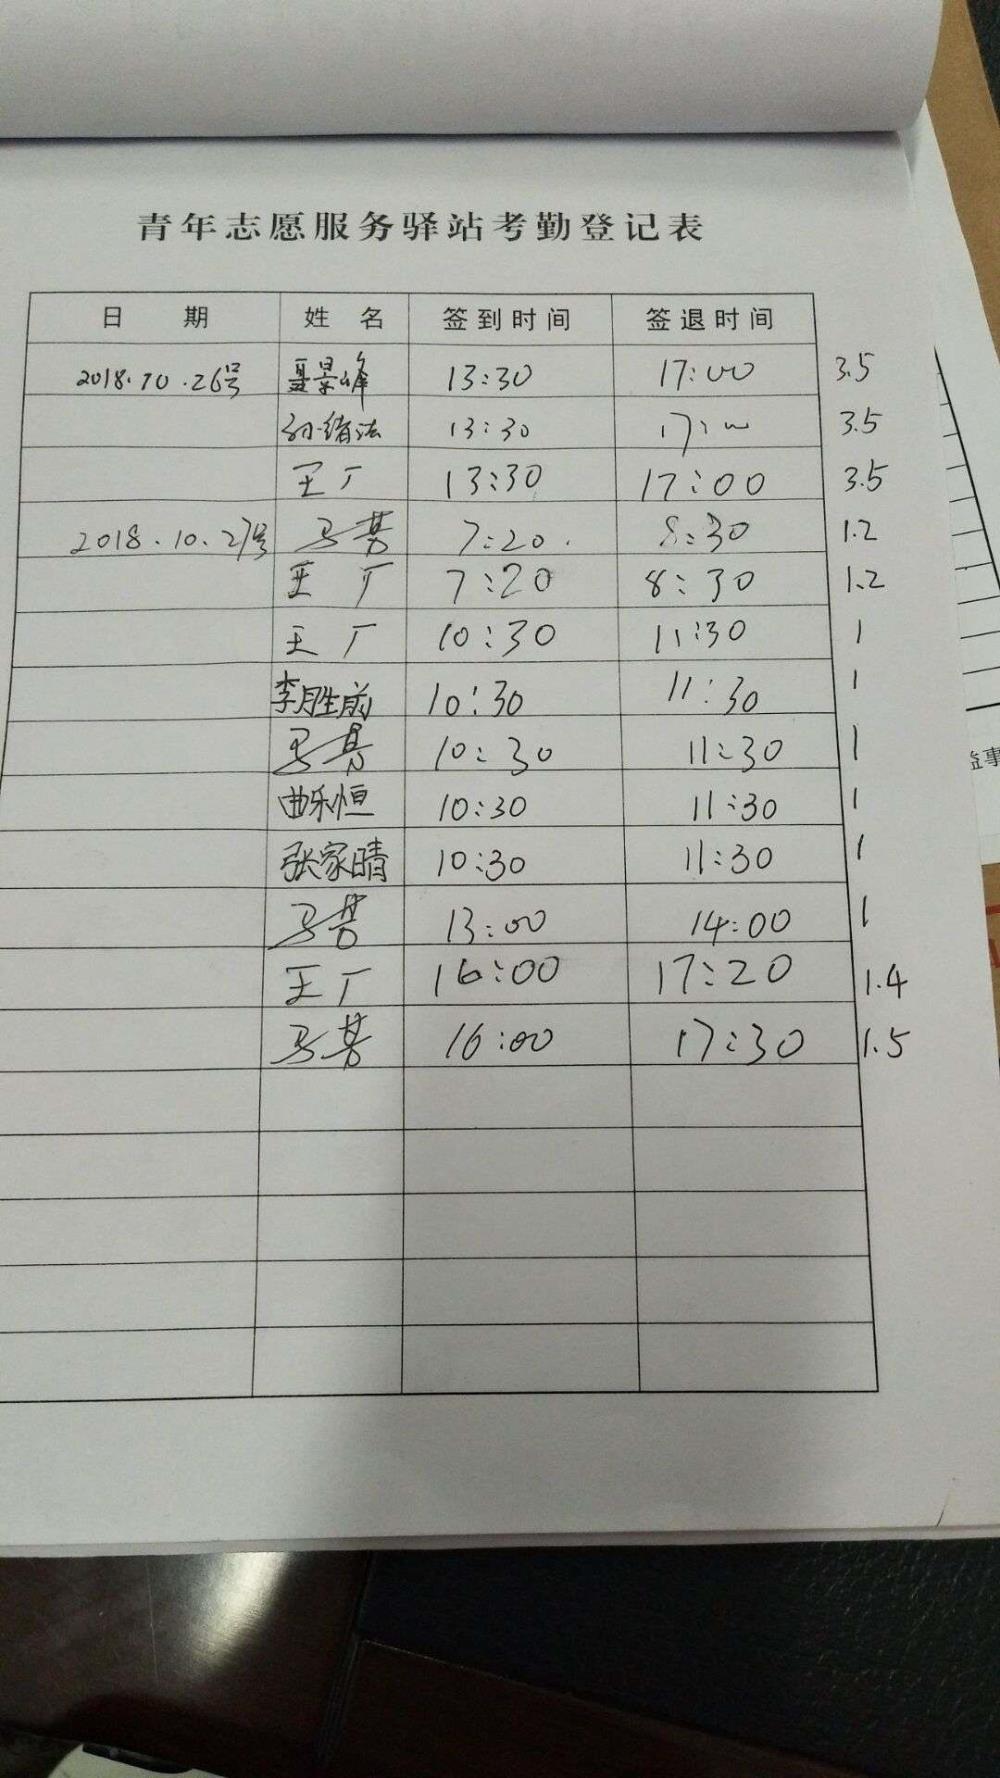 青年志愿服务驿站考勤登记表
日 期 姓 名 签到时间 签退时间
2018.10.26号 聂景峰 13:30 17:00 3.5
孙绪法 13:30 17:00 3.5
王厂 13:30 17:00 3.5
2018.10.27号 马 7:20 8:30 1.2
王厂 7:20 8:30 1.2
王厂 10:30 11:30 1
李胜前 10:30 11:30 1
马 10:30 11:30 1
曲乐恒 10:30 11:30 1
张家晴 10:30 11:30 1
马 13:00 14:00 1
王厂 16:00 17:20 1.4
马 16:00 17:30 1.5
益事